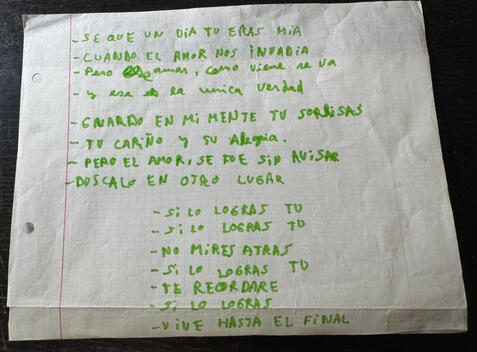 - SE QUE UN DIA TU ERAS MIA
- CUANDO EL AMOR NOS INVADIA
- Pero amor, como viene se va
- y esa es la unica verdad
- GUARDO EN MI MENTE TU SORRISAS
- TU CARIÑO y SU Alegria.
- PERO EL AMOR, SE FUE SIN AVISAR
- BOSCALO EN OTRO LUGAR
- SI LO LOGRAS TU
- SI LO LOGRAS TU
- NO MIRES ATRAS
- SI LO LOGRAS TU
- TE RECORDARE
- SI LO LOGRAS
- VIVE HASTA EL FINAL